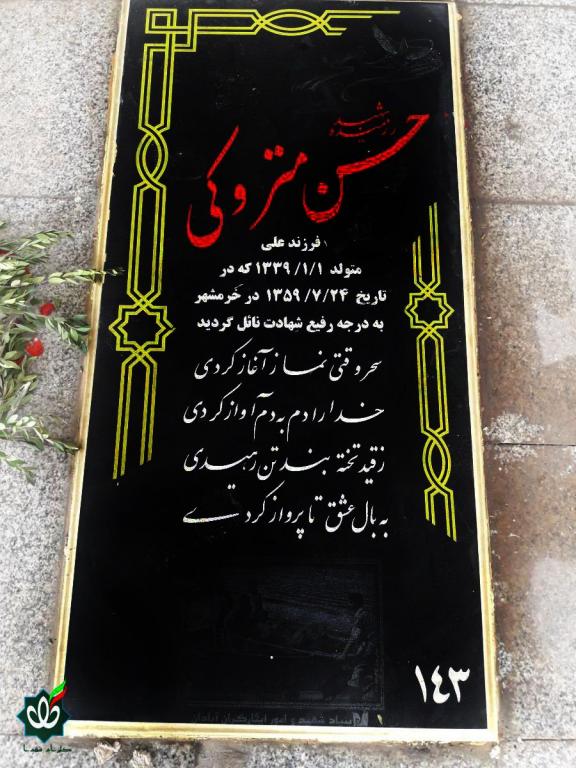 رزمنده شهید
حسن متروکی
فرزند علی
متولد ۱۳۳۹/۱/۱ که در
تاریخ ۱۳۵۹/۷/۲۴ در خرمشهر
به درجه رفیع شهادت نائل گردید
سحر وقتی نماز آغاز کردی
خدا را دم به دم آواز کردی
ز قید تخته بند تن رهیدی
به بال عشق تا پرواز کردی
۱۴۳
بنیاد شهید و امور ایثارگران آبادان